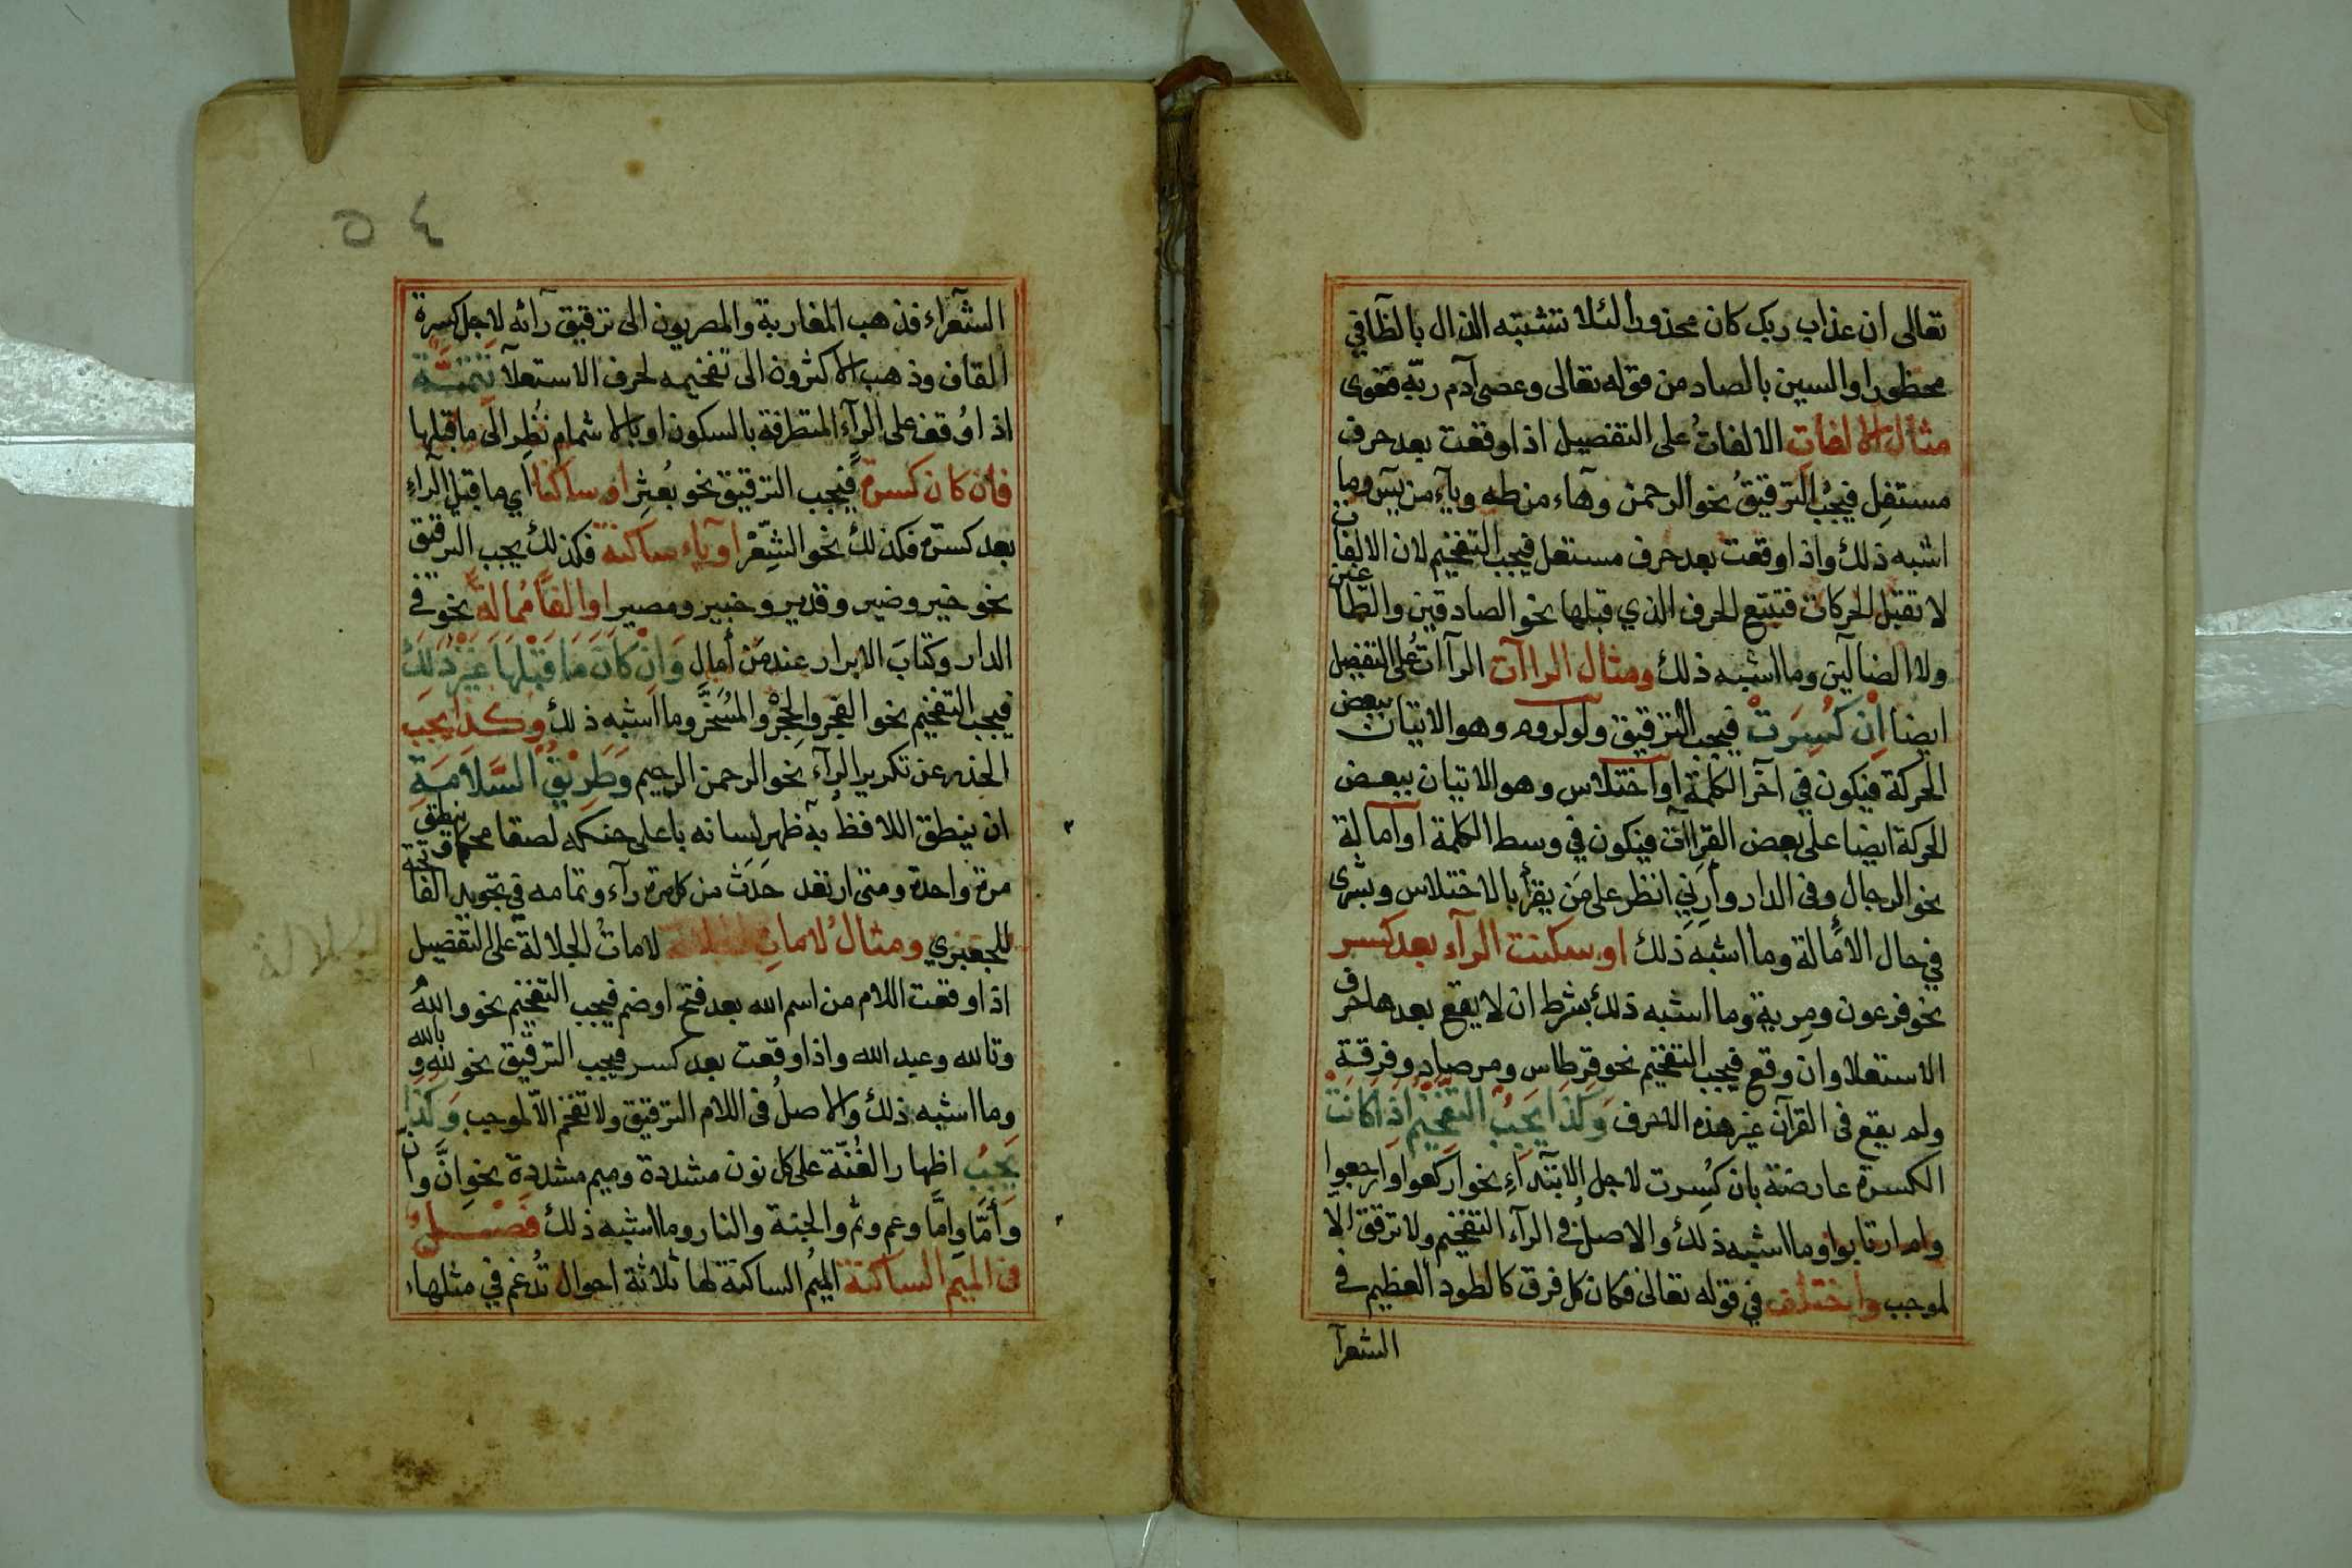 تعالى ان عذاب ربك كان محذورا لئلا تشتبه الذال بالظا في
محظورا والسين بالصاد من قوله تعالى وعصى آدم ربّه فغوى
مثال الالفات الالفاتُ على التفصيل اذا وقعت بعد حرف
مستفِل فيجبُ الترقيقُ نحو الرحمن وهاء من طه وياء من يس وما
اشبه ذلك واذا وقعت بعد حرف مستعل فيجب التفخيم لان الالفات
لا تقبل الحركات فتتبع للحرف الذي قبلها نحو الصادقين والطاغين
ولا الضآلين وما اشبه ذلك ومثال الراآت الرآات على التفصيل
ايضا اِنْ كُسِرَتْ فيجب الترقيق ولو لروم وهو الاتيان ببعض
الحركة فيكون في آخر الكلمة او اختلاس وهو الاتيان ببعض
الحركة ايضا على بعض القراآت فيكون في وسط الكلمة او امالة
نحو الرجال وفى الدار وأَرِنِي انظر على مَن يقرأ بالاختلاس وبشرى
في حال الامالة وما اشبه ذلك او سكنت الرآء بعد كسر
نحو فرعون ومِرية وما اشبه ذلك بشرط ان لا يقع بعدها حرف
الاستعلا وان وقع فيجب التفخيم نحو قِرطاس ومرصاد وفرقة
ولم يقع فى القرآن غير هذه الاحرف وَكَذَا يَجِبُ التَّفْخِيمُ اِذَا كَانَتْ
الكسرة عارضة بان كُسِرت لاجل الابتدآءِ نحو اركعوا وارجعوا
وام ارتابوا وما اشبه ذلك والاصلُ في الرآء التفخيم ولا ترقق الا
لموجب واختلف في قوله تعالى فكان كل فرق كالطود العظيم في
الشعرآ
٥٤
الشعرآء فذهب المغاربة والمصريون الى ترقيق رائه لاجل كسرة
القاف وذهب الاكثرون الى تفخيمه لحرف الاستعلآ تَتِمَّة
اذا وُقف على الرآءِ المتطرفة بالسكون او بالاشمام نُظِر الى ما قبلها
فان كان كسرة فيجب الترقيق نحو بُعثِر او ساكنا اي ما قبل الرآء
بعد كسرة فكذلك نحو الشِّعْر او ياء ساكنة فكذلك يجب الترقيق
نحو خير وضير وقدير وخبير ومصير او الفا ممالة نحو في
الدار وكتابَ الابرار عند مَن أمال وَاِنْ كَانَ مَا قَبْلَهَا غَيْرَ ذٰلِكَ
فيجب التفخيم نحو الفجر والحِجْر والمُسَخَّر وما اشبه ذلك وكذا يجب
الحذر عن تكرير الرآء نحو الرحمن الرحيم وَطَرِيْقُ السَّلَامَةِ
ان ينطق اللافظ به ظهر لسانه باعلى حنكه لصقا محكما فينطق
مرة واحدة ومتى ارتعد حَدَثَ من كل مرة رآء وتمامه في تجويد الفاتحة
للجعبري ومثالُ لاماتِ الجلالة لاماتُ الجلالة على التفصيل
الجلالة
اذا وقعت اللام من اسم الله بعد فتح او ضم فيجب التفخيم نحو واللهُ
وتالله وعبد الله واذا وقعت بعد كسر فيجب الترقيق نحو للهِ وبالله
وما اشبه ذلك والاصلُ فى اللام الترقيق ولا تفخم الا لموجب وَكَذَا
يَجِبُ اظهار الغُنّة على كل نون مشددة وميم مشددة نحو اِنَّ وان
وأمَّا واِمَّا وعم وثم والجنة والنار وما اشبه ذلك فَصْلٌ
فى الميم الساكنة الميمُ الساكنة لها ثلاثة احوال تُدغم في مثلها